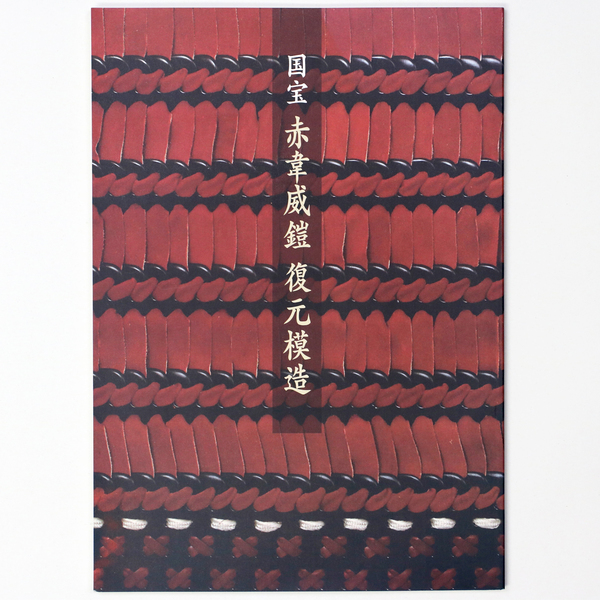 国宝 赤韋威鎧 復元模造